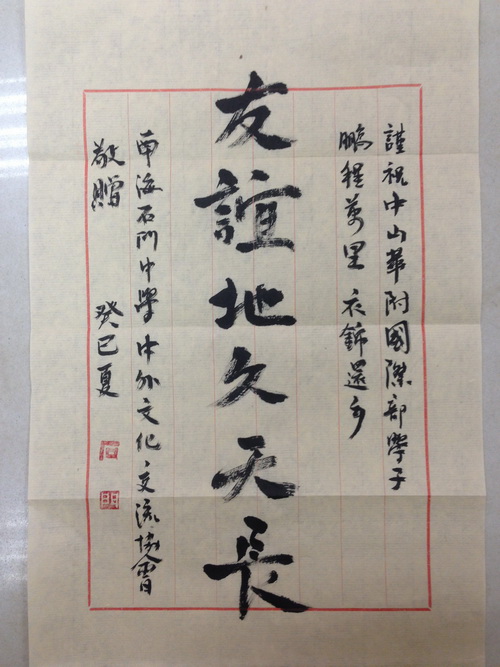 謹祝中山華附國際部學子
鵬程萬里 衣錦還乡
友誼地久天長
南海石門中學中外文化交流協會
敬贈 癸巳夏
石
門